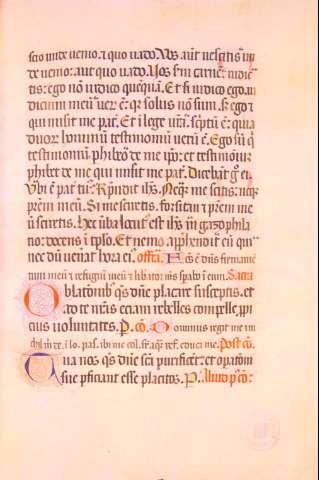 scio unde uenio. ⁊ quo uado. Uos aut̄ nescitis ūn
de uenio: aut quo uado. Uos s̄m carnē iudica
tis: ego nō iudico quēquā. Et si iudico ego. iu
dicium meū uerū ē: q̄ solus nō sum. s; ego ⁊
qui misit me pat̄. Et i lege ur̄a sc̄ptū ē: quia
duor̄ hominū testimoniū uerū ē. Ego sū q̄
testimoniū phibeo de me ip̄o: et testimōiū
phibet de me qui misit me pat̄. Dicebāt g̊ ei.
Ubi ē pat̄ tuus. Rn̄dit ih̄s. Neq; me scitis: neq;
prēm meū. Si me sciretis. forsitan ⁊ prēm me
ū sciretis. Hec ūba locut̄ est ih̄s in gazophila
tio: docens ī tp̄lo. Et nemo app̄hendit eū quia
nec dū uenāt hora ei. offr̄a. D̄ns ē dn̄s firmamē
tum meū ⁊ refugiū meū ⁊ libator ms̄ spabo ī eum. Sacra
Oblationib; q̄s dn̄e placare susceptis. et
ad te nr̄as etiam rebelles compelle, ppi
cius uoluntates. P. cō. Dominus regit me ⁊ ni
chil m̄ ... ī lo. pas. ibi me col. sr̄ aq̄ ref. educi me. Post cō.
Tua nos q̄s dn̄e sc̄a purificent: et opatione
sua pficiant esse placitos. P.